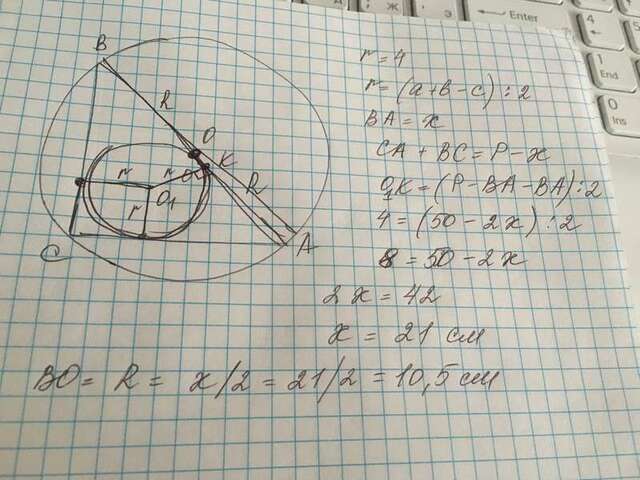 B
R
O
K
r
r
O₁
R
r
C
A
r = 4
r = (a+b-c) : 2
BA = x
CA + BC = P - x
O₁K = (P - BA - BA) : 2
4 = (50 - 2x) : 2
8 = 50 - 2x
2x = 42
x = 21 см
BO = R = x/2 = 21/2 = 10,5 см
Enter
4
1
End
0
Ins
ж
э